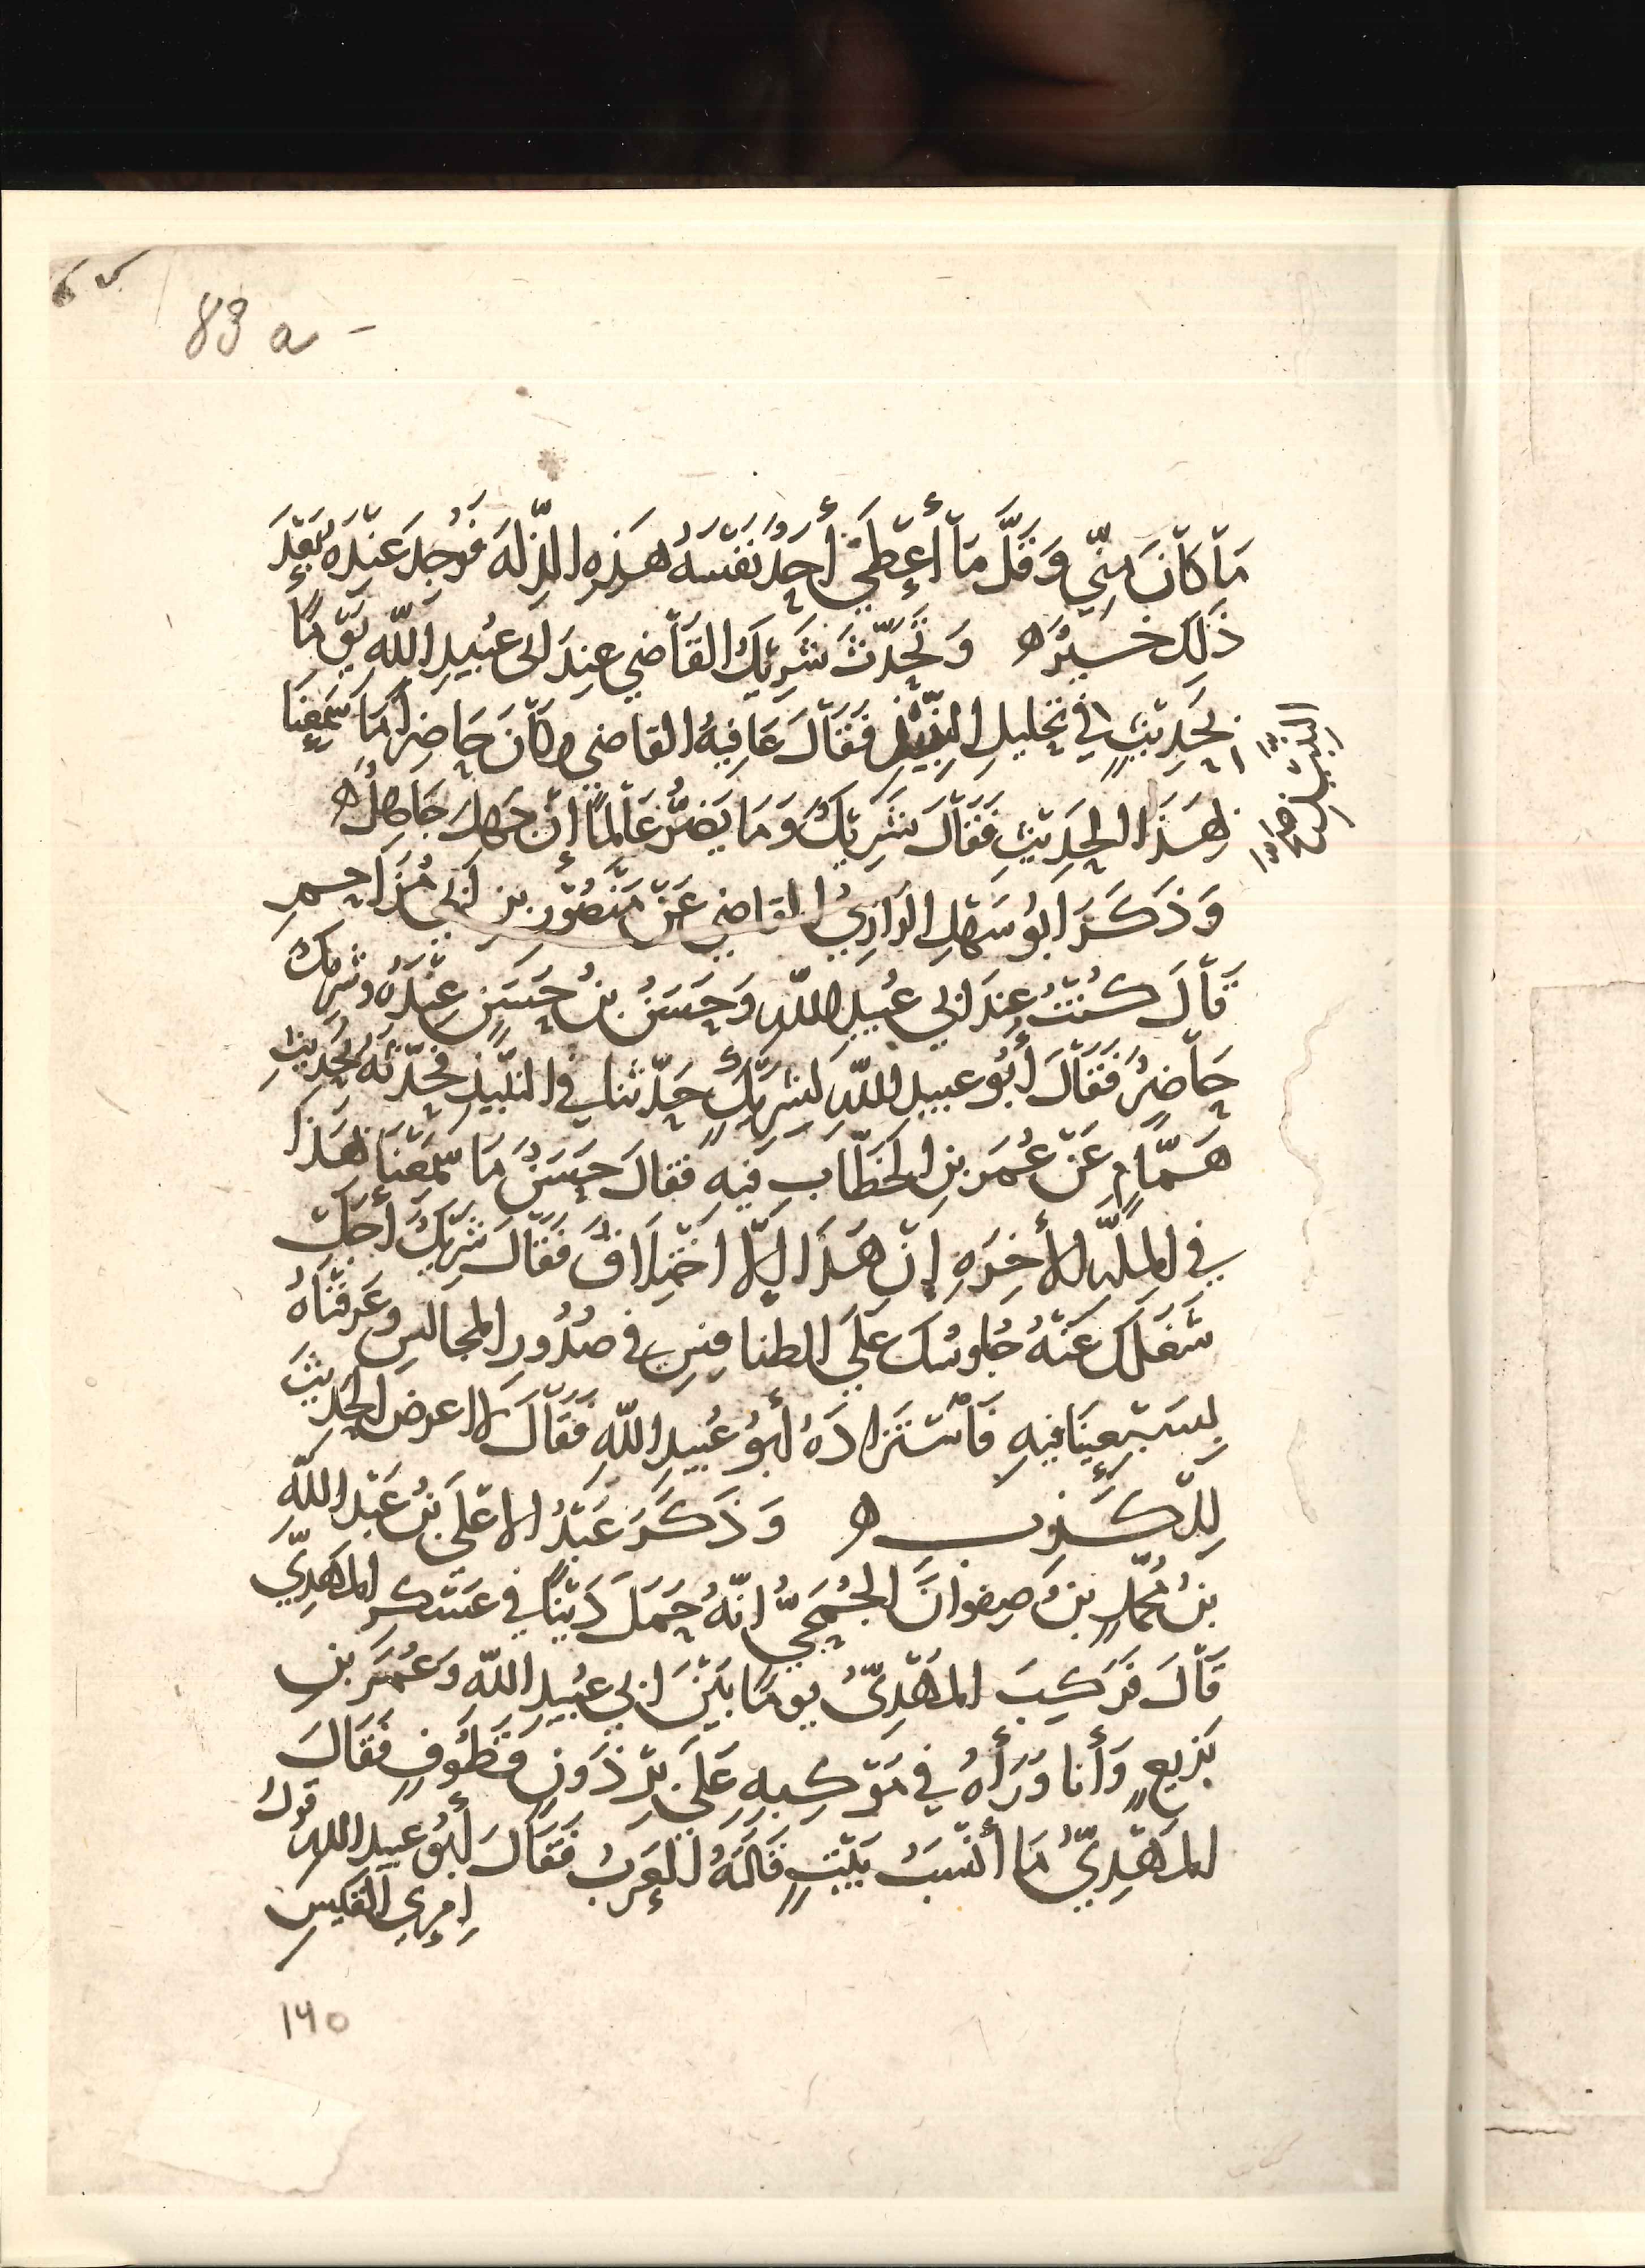 83 a -
مَا كَانَ مِنِّي وَقَلَّ مَا أَعْطَى أَحَدٌ نَفْسَهُ هَذِهِ الذِّلَّةَ فَوُجِدَ عِنْدَهُ بَعْدَ
ذَلِكَ خَيْرٌ ه وَتَحَدَّثَ شَرِيكُ القَاضِي عِنْدَ ابى عُبَيْدِ اللّه يَوْمًا
بِحَدِيثٍ فِي تَحْلِيلِ النَّبِيْذِ فَقَالَ عَافِيةُ القاضي وكَانَ حَاضِرًا مَا سَمِعْنَا
النبيذ صح
بِهَذَا الحَدِيْثِ فَقَالَ شَرِيْكُ وَمَا يَضُرُّ عَالِمًا إنْ جَهِلَ جَاهِلٌ ه
وَذَكَرَ ابُو سَهْلِ الرَازِيُّ القاضِي عَنْ مَنْصُوْرِ بنِ أبي مُزَاحِمِ
قَالَ كُنْتُ عِندَ ابي عُبَيدِ اللّه وَحَسَنُ بنُ حَسَنٍ عِنْدَهُ وشَرِيكُ
حَاضِرٌ فَقَالَ أَبُو عبيد اللّه لشَرِيْكٍ حَدِّثنا في النَّبِيذِ فَحَدَّثَهُ بِحَدِيثِ
هَمَّامٍ عَنْ عُمَرَ بنِ الخَطَّابِ فيهِ فقالَ حَسَنٌ مَا سَمِعْنَا بهَذَا
فِي المِلَّةِ الأخِرَةِ إنْ هَذَا الاّ اخْتِلَاقٌ فَقَالَ شَرِيْكٌ أَجَلْ
شَغَلَكَ عَنْهُ جُلوسُكَ عَلَى الطنافِسِ في صُدُورِ المجَالسِ وعَرَفْنَاهُ
بِسَعْيِنَا فيهِ فَاسْتَزَادَهُ أبُو عُبَيدِ اللّهِ فَقَالَ لا اعرض الحَدِيثَ
لِلْكَذِبِ ه وَذَكَرَ عَبْدُ الاعْلَى بنُ عَبْدِ اللّهِ
بنُ مُحَمَّدٍ بنُ صفوانَ الجُمَحِيُّ انّهُ حَمَلَ دَيْنًا فِي عَسْكرِ المَهدِيّ
قَالَ فَرَكِبَ المَهْدِيُّ يومًا بَيْنَ ابي عُبَيدِ اللّه وَعُمَرَ بنِ
بَزيعٍ وَأنا وَرَاهُ فِي مَوْكِبِهِ عَلَى بِرْذَوْنٍ قَطُوفٍ فَقَالَ
المَهْدِيُّ مَا أنْسَبُ بَيْتٍ قَالَتْهُ العَرَبُ فَقَالَ أبُو عبيد اللّه قولُ
امرىِ القَيسِ
١٩٥